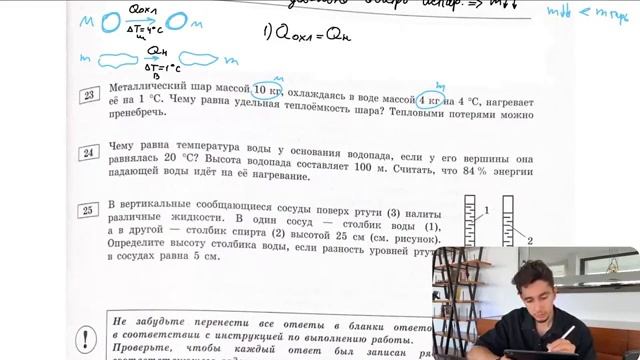 m↓↓ < m
Qохл
M M
ΔT=4°C
ш
1) Qохл = Qн
Qн
m m
ΔT=1°C
В
M
m
23 Металлический шар массой 10 кг, охлаждаясь в воде массой 4 кг на 4 °С, нагревает
её на 1 °С. Чему равна удельная теплоёмкость шара? Тепловыми потерями можно
пренебречь.
24 Чему равна температура воды у основания водопада, если у его вершины она
равнялась 20 °С? Высота водопада составляет 100 м. Считать, что 84 % энергии
падающей воды идёт на её нагревание.
25 В вертикальные сообщающиеся сосуды поверх ртути (3) налиты
различные жидкости. В один сосуд — столбик воды (1),
а в другой — столбик спирта (2) высотой 25 см (см. рисунок).
Определите высоту столбика воды, если разность уровней
в сосудах равна 5 см.
1
2
! Не забудьте перенести все ответы в бланки
в соответствии с инструкцией по выполнению работы.
Проверьте, чтобы каждый ответ был записан